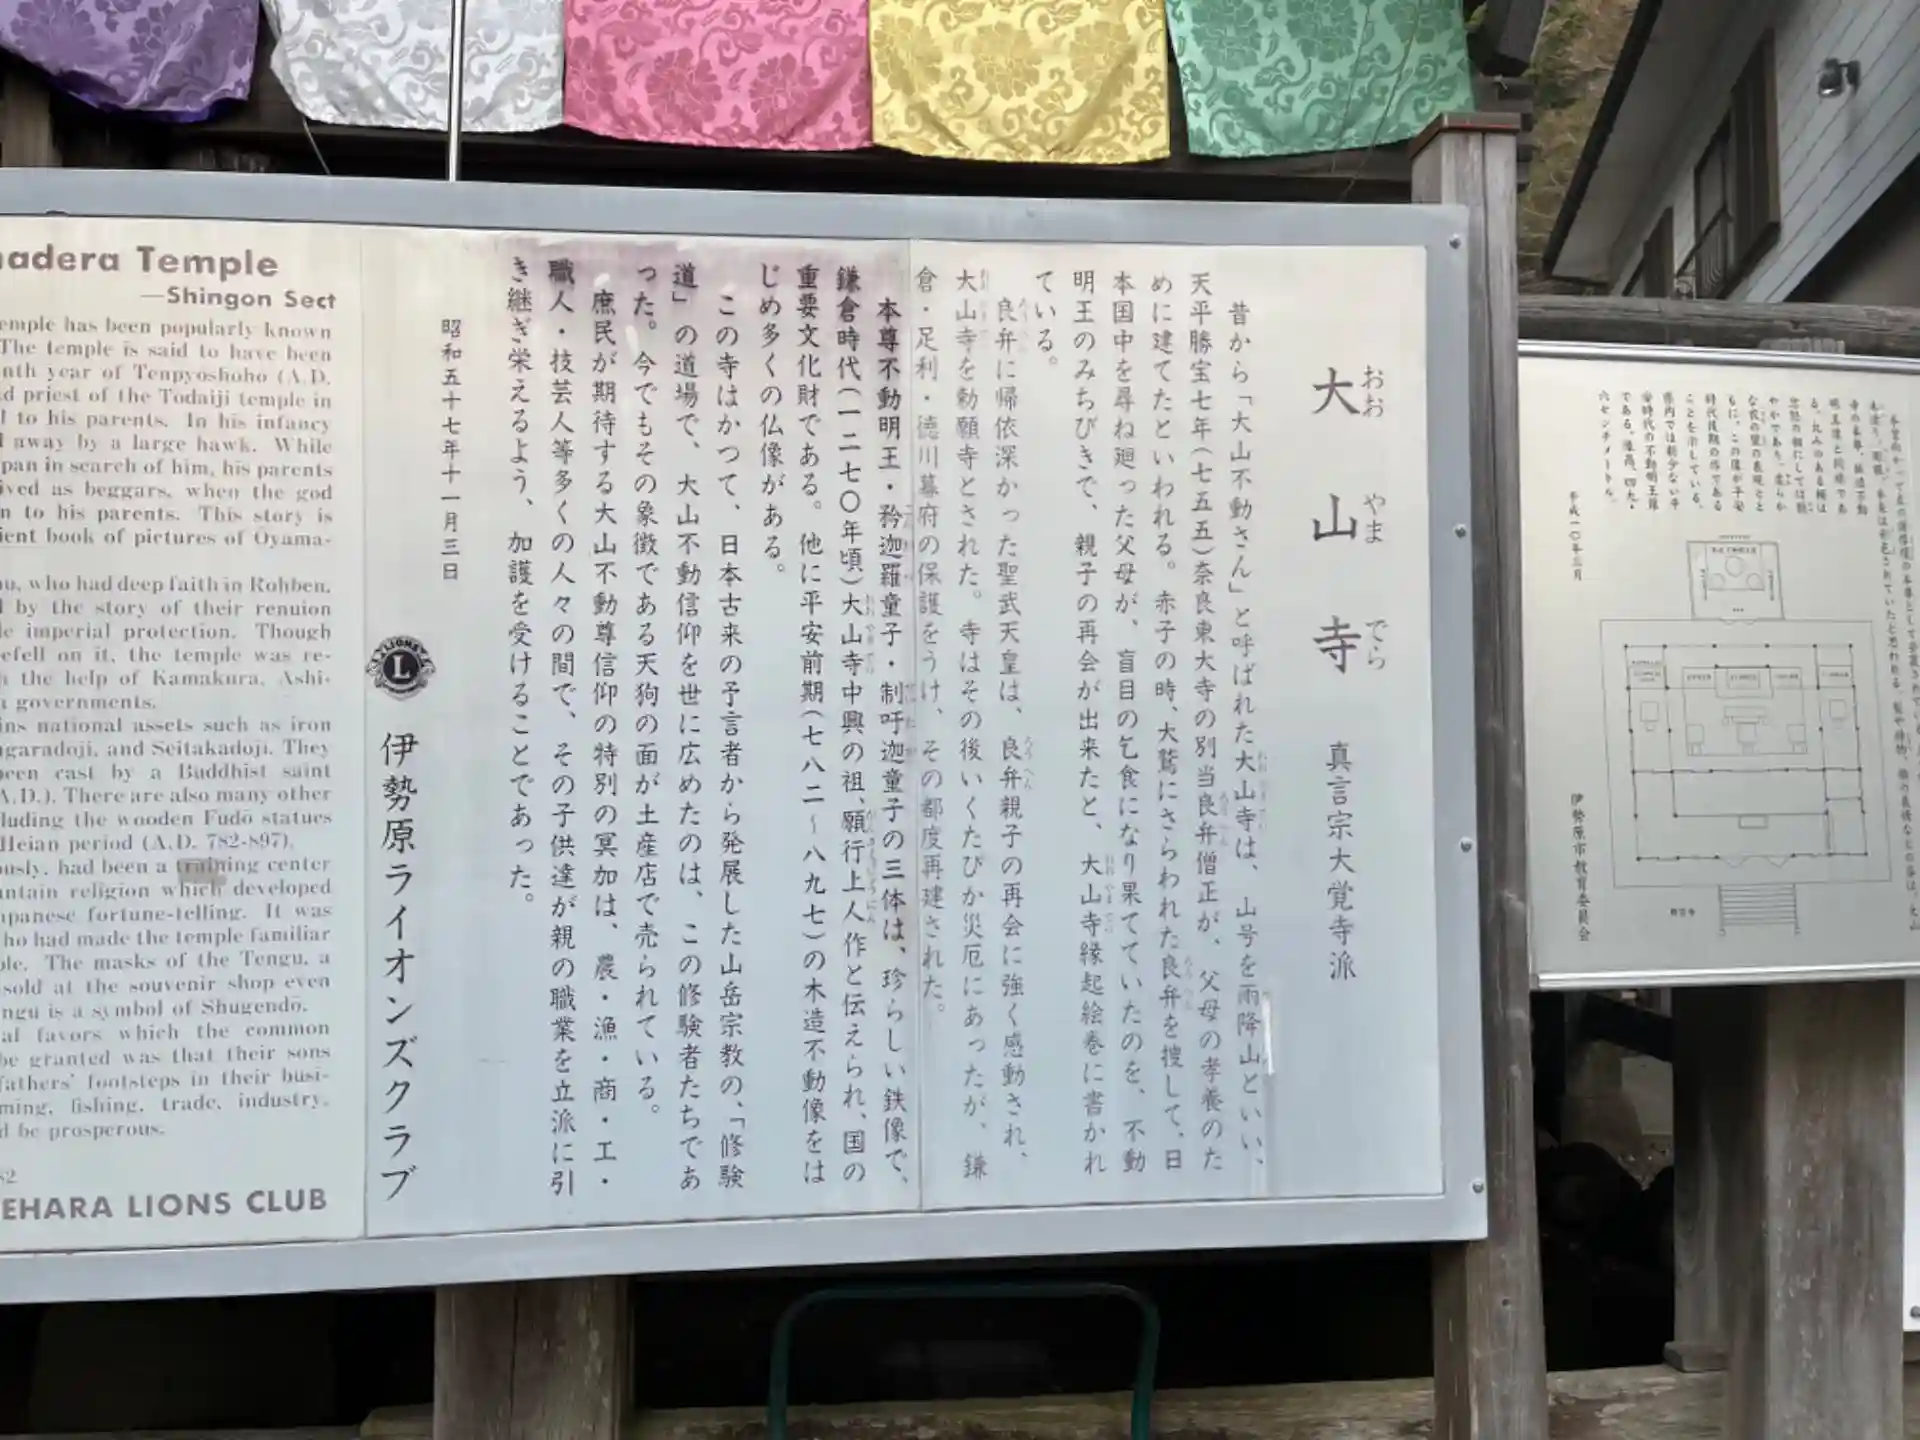 大山寺
おお やま でら
真言宗大覚寺派
昔から「大山不動さん」と呼ばれた大山寺は、山号を雨降山といい、
天平勝宝七年(七五五)奈良東大寺の別当良弁僧正が、父母の孝養のた
めに建てたといわれる。赤子の時、大鷲にさらわれた良弁を捜して、日
本国中を尋ね廻った父母が、盲目の乞食になり果てていたのを、不動
明王のみちびきで、親子の再会が出来たと、大山寺縁起絵巻に書かれ
ている。
良弁に帰依深かった聖武天皇は、良弁親子の再会に強く感動され、
大山寺を勅願寺とされた。寺はその後いくたびか災厄にあったが、鎌
倉・足利・徳川幕府の保護をうけ、その都度再建された。
本尊不動明王・矜迦羅童子・制吒迦童子の三体は、珍らしい鉄像で、
鎌倉時代(一二七〇年頃)大山寺中興の祖、願行上人作と伝えられ、国の
重要文化財である。他に平安前期(七八二〜八九七)の木造不動像をは
じめ多くの仏像がある。
この寺はかつて、日本古来の予言者から発展した山岳宗教の、「修験
道」の道場で、大山不動信仰を世に広めたのは、この修験者たちであ
った。今でもその象徴である天狗の面が土産店で売られている。
庶民が期待する大山不動尊信仰の特別の冥加は、農・漁・商・工・
職人・技芸人等多くの人々の間で、その子供達が親の職業を立派に引
き継ぎ栄えるよう、加護を受けることであった。
昭和五十七年十一月三日
LIONS
L
伊勢原ライオンズクラブ
adera Temple
—Shingon Sect
emple has been popularly known
The temple is said to have been
nth year of Tenpyoshoho (A.D.
d priest of the Todaiji temple in
l to his parents. In his infancy
l away by a large hawk. While
pan in search of him, his parents
ived as beggars, when the god
n to his parents. This story is
ient book of pictures of Oyama-
u, who had deep faith in Rohben,
l by the story of their renuion
le imperial protection. Though
efell on it, the temple was re-
h the help of Kamakura, Ashi-
a governments.
ins national assets such as iron
ngaradoji, and Seitakadoji. They
been cast by a Buddhist saint
A.D.). There are also many other
luding the wooden Fudō statues
Heian period (A.D. 782-897).
ously, had been a training center
untain religion which developed
apanese fortune-telling. It was
ho had made the temple familiar
ple. The masks of the Tengu, a
sold at the souvenir shop even
ngu is a symbol of Shugendō.
al favors which the common
be granted was that their sons
fathers' footsteps in their busi-
ming, fishing, trade, industry,
d be prosperous.
82
EHARA LIONS CLUB
時代後期の作である
ことを示している。
県内では数少ない平
安時代の不動明王像
である。像高、四九・
六センチメートル。
平成一〇年三月
伊勢原市教育委員会